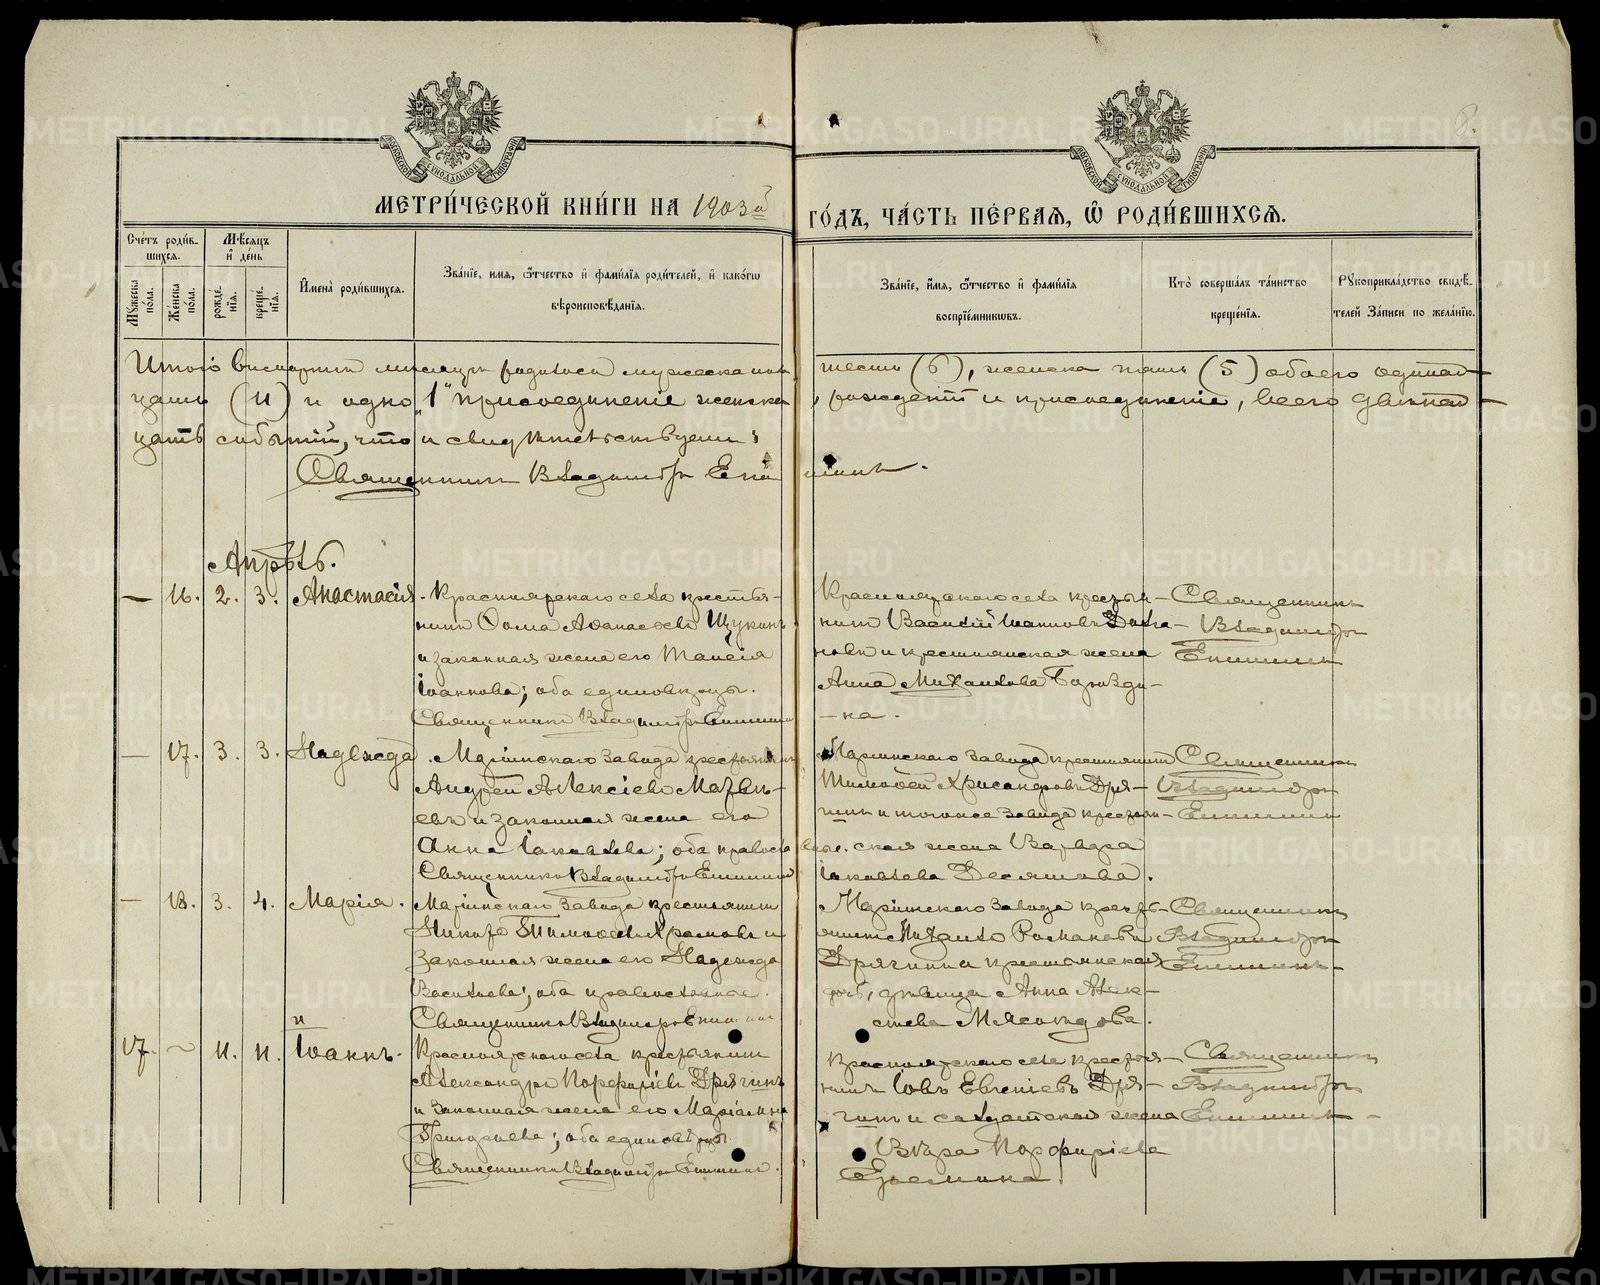 МОСКОВСКОЙ СУНОДАЛЬНОЙ ТИПОГРАФІИ
МОСКОВСКОЙ СУНОДАЛЬНОЙ ТИПОГРАФІИ
8.
МЕТРИ́ЧЕСКОЙ КНИ́ГИ НА 1903й ГО́ДЪ, ЧА́СТЬ ПЕ́РВАЯ, Ѡ РОДИ́ВШИХСЯ.
Сче́тъ роди́в-
шихся.
Му́жеска по́ла.
Же́нска по́ла.
Мѣ́сяцъ
и҆ де́нь
рожде́нїя.
креще́нїя.
И҆мена̀ роди́вшихся.
Зва́нїе, и҆́мя, ѻ҆́тчество и҆ фами́лїя роди́телей, и҆ како́гѡ
вѣроисповѣ́данїя.
Зва́нїе, и҆́мя, ѻ҆́тчество и҆ фами́лїя
воспрїе́мникѡвъ.
Кто̀ соверша́лъ та́инство
креще́нїя.
Рꙋкоприкла́дство свидѣ́-
телей за́писи по жела́нїю.
Итого в мартѣ мѣсяцѣ родилось мужеска пола шесть (6), женска пять (5) обоего одиннад-
цать (11) и одно "1" присоединеніе женска, рожденій и присоединеніе, всего двѣнад-
цать событій, что и свидѣтельствуемъ:
Священникъ Владиміръ Епишинъ.
Апрѣль.
— 16. 2. 3. Анастасія.
Красноярскаго села крестья-
нинъ Ѳома Аѳанасіевъ Щукинъ
и законная жена его Таисія
Іоаннова; оба единовѣрцы.
Священникъ Владиміръ Епишинъ
Красноярскаго села крестья-
нинъ Василій Іоанновъ
и крестьянская жена
Анна Михаилова
-на.
Священникъ
Владиміръ
Епишинъ
— 17. 3. 3. Надежда
Маріинскаго завода крестьянинъ
Андрей Алексіевъ
и законная жена его
Анна Іаковлева; оба православные.
Священникъ Владиміръ Епишинъ
Маріинскаго завода крестьянинъ
Тимоѳей Хрисанфовъ Дря-
гинъ и того же завода крестьян-
ская жена Варвара
Іаковлева Десятова.
Священникъ
Владиміръ
Епишинъ
— 18. 3. 4. Марія.
Маріинскаго завода крестьянинъ
Никола Тимоѳеевъ Храмовъ и
законная жена его Надежда
Васильева; оба православные.
Священникъ Владиміръ Епишинъ
Маріинскаго завода кресть-
янинъ Михаилъ Романовъ
Дрягинъ и крестьянская
дочь, дѣвица Анна Алек-
сіева Мясоѣдова.
Священникъ
Владиміръ
Епишинъ
17. ~ 11. 11. Іоаннъ.
Красноярскаго села крестьянинъ
Александръ Порфиріевъ Дрягинъ
и законная жена его Маріамна
Григорьева; оба единовѣрцы.
Священникъ Владиміръ Епишинъ.
Красноярскаго села крестья-
нинъ Іовъ Евгеніевъ Дря-
гинъ и солдатская жена
Вѣра Порфиріева
Еремина.
Священникъ
Владиміръ
Епишинъ